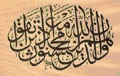 إن الله مع الذين اتقوا والذين هم محسنون